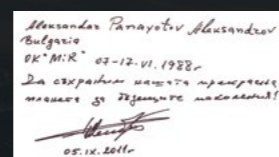 Alexandar Panayotov Alexandrov
Bulgaria
OK "MiR" 07-17.VI.1988г
Да съхраним нашата прекрасна
планета за бъдещите поколения!
05.IX.2011г.